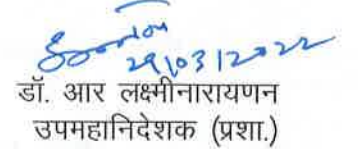 29/03/2022
डॉ. आर लक्ष्मीनारायणन
उपमहानिदेशक (प्रशा.)